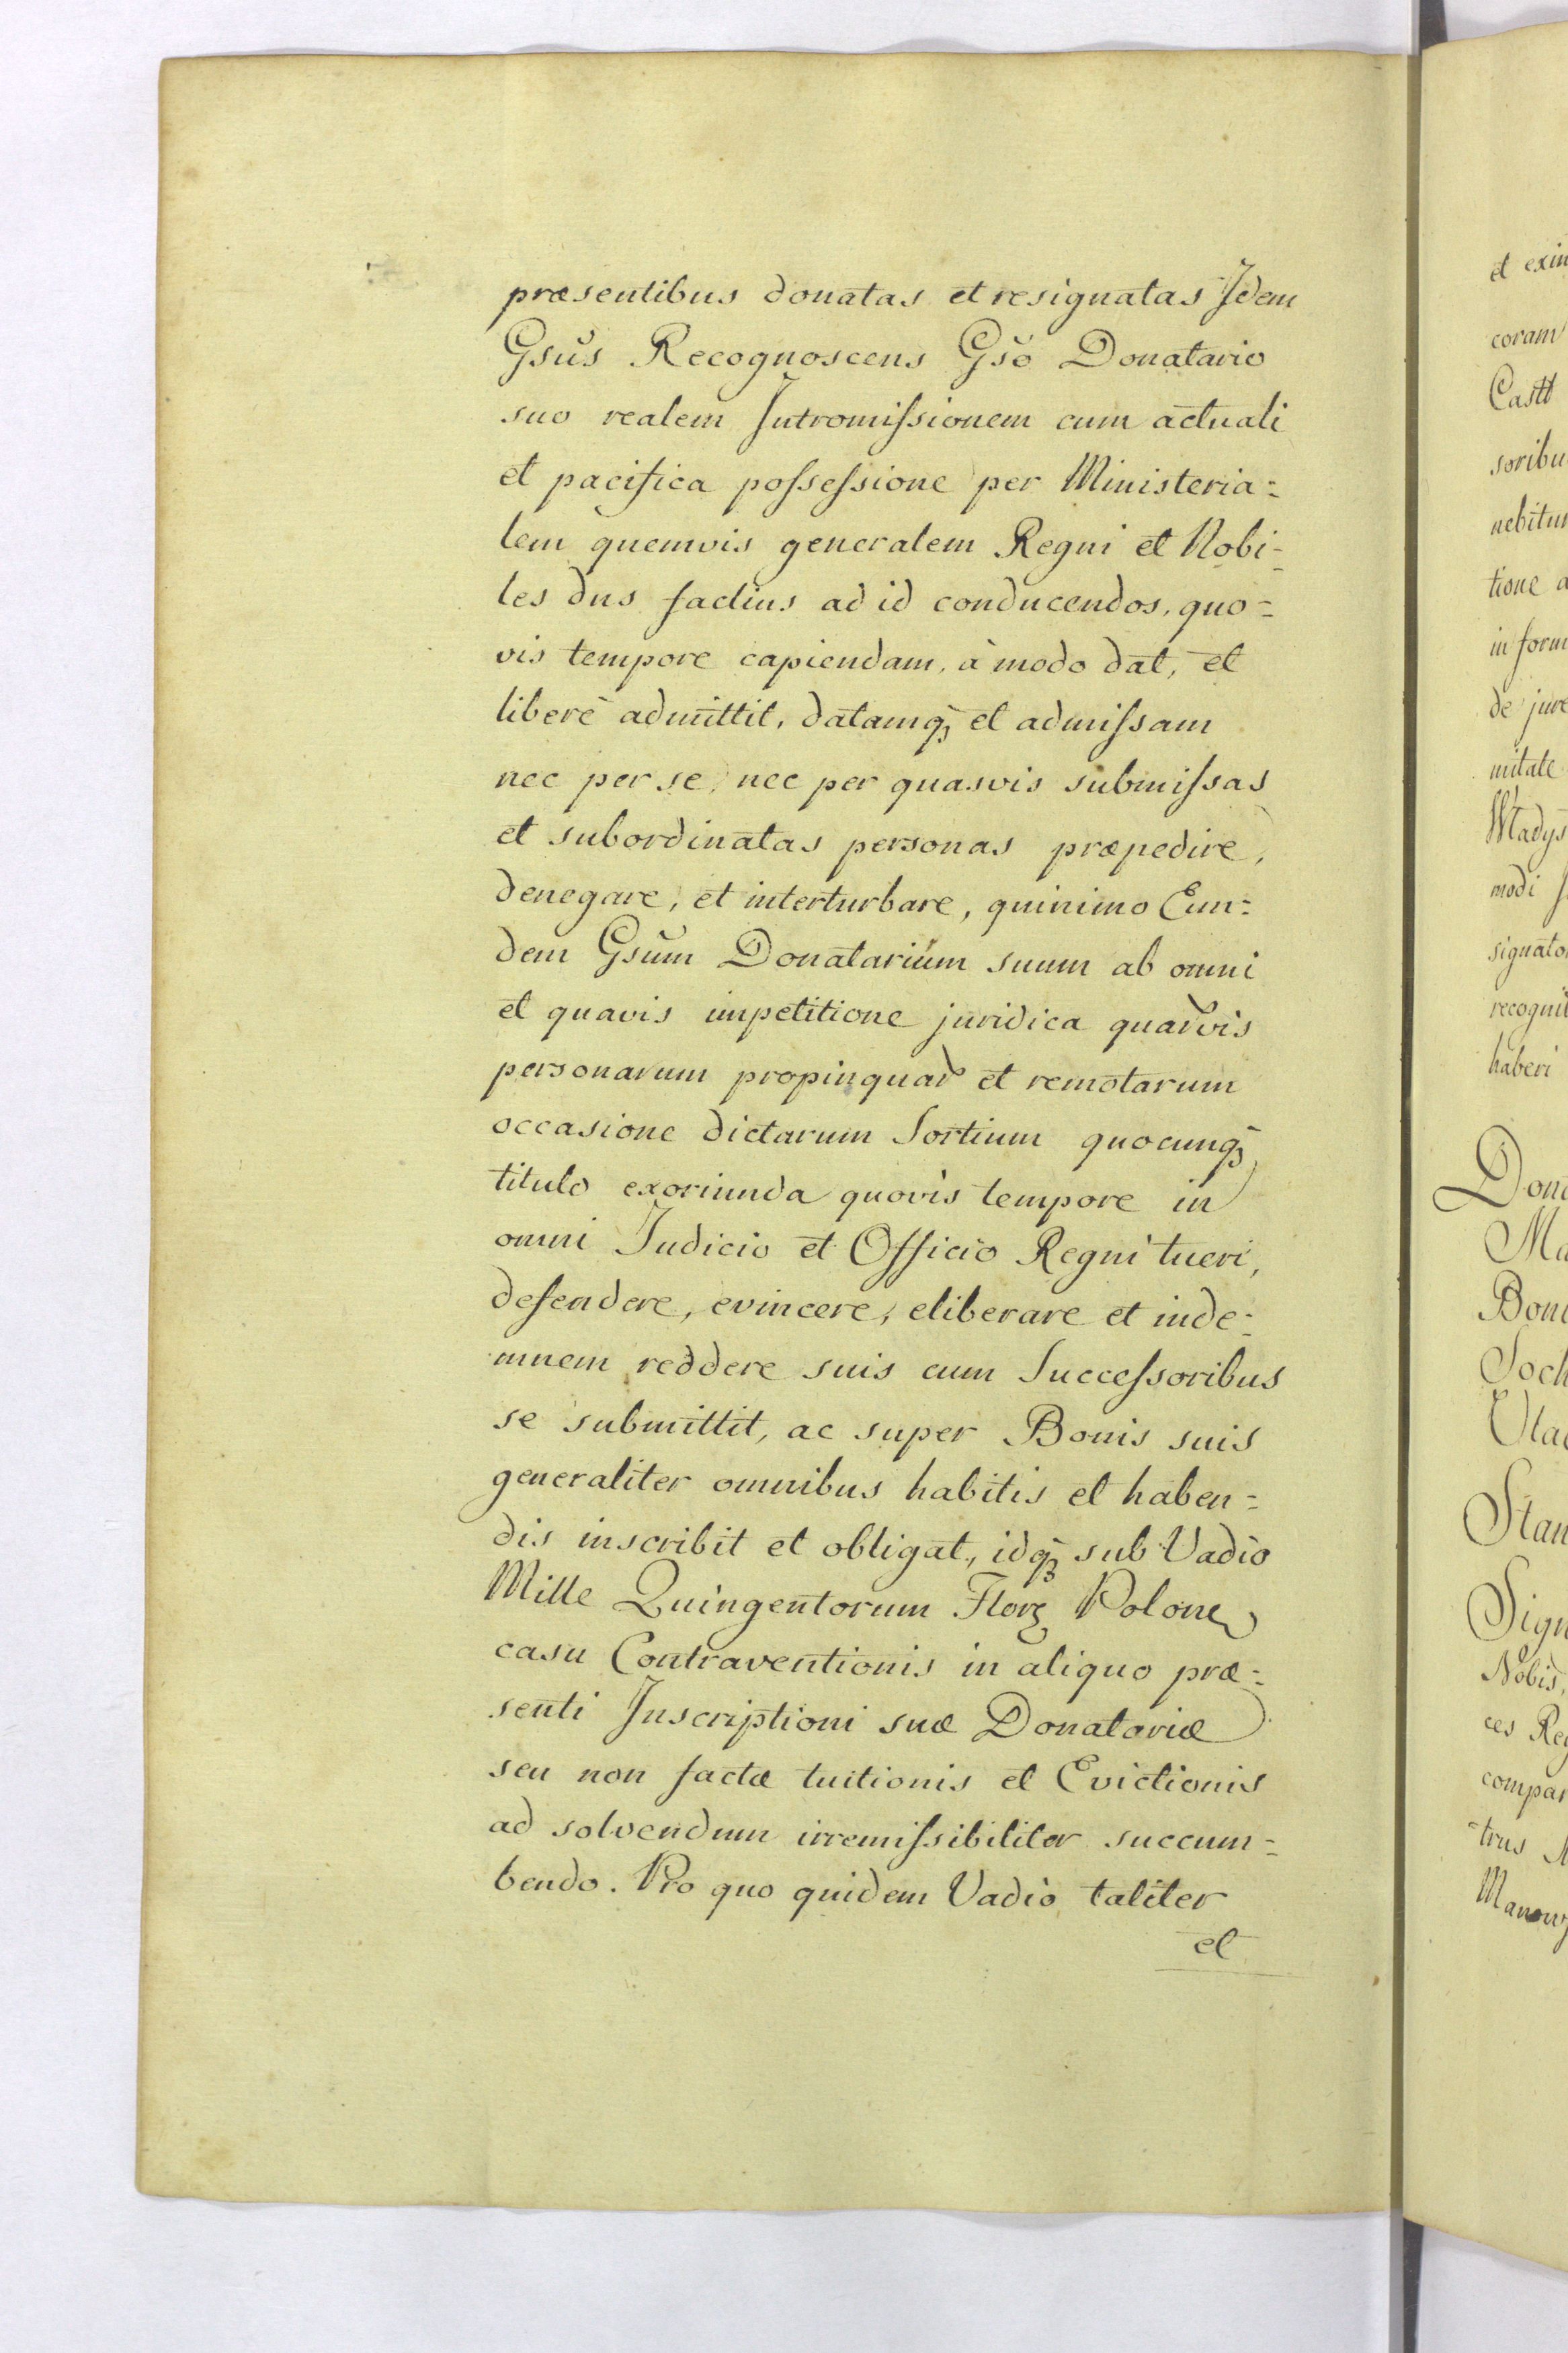 præsentibus donatas et resignatas Idem
Gsũs Recognoscens Gsõ Donatario
suo realem Intromiſsionem cum actuali
et pacifica poſseſsione per Ministeria=
lem quemvis generalem Regni et Nobi=
les dus factius ad id conducendos, quo=
vis tempore capiendam, à modo dat, et
liberè admittit, datamq̃ et admiſsam
nec per se, nec per quasvis submiſsas
et subordinatas personas præpedire,
denegare, et interturbare, quinimo Eun=
dem Gsũm Donatarium suum ab omni
et quavis impetitione juridica quar̃vis
personarum propinquar̃ et remotarum
occasione dictarum Sortium quocunq̃
titulo exoriunda quovis tempore in
omni Judicio et Officio Regni tueri,
defendere, evincere, eliberare et inde=
mnem reddere suis cum Succeſsoribus
se submittit, ac super Bonis suis
generaliter omnibus habitis et haben=
dis inscribit et obligat, idq̃ sub Vadio
Mille Quingentorum Flor Polone
casu Contraventionis in aliquo præ=
senti Inscriptioni suæ Donatoriæ
seu non factæ tuitionis et Evictionis
ad solvendum irremiſsibiliter succum=
bendo. Pro quo quidem Vadio taliter
et
et exin
coram
Castt
soribu
nebitur
tione a
in form
de jure
mitate
Władys
modi
signato
recognit
haberi
Dona
Ma
Bono
Soch
Utac
Stan
Sign
Nobis,
ces Reg
compar
trus